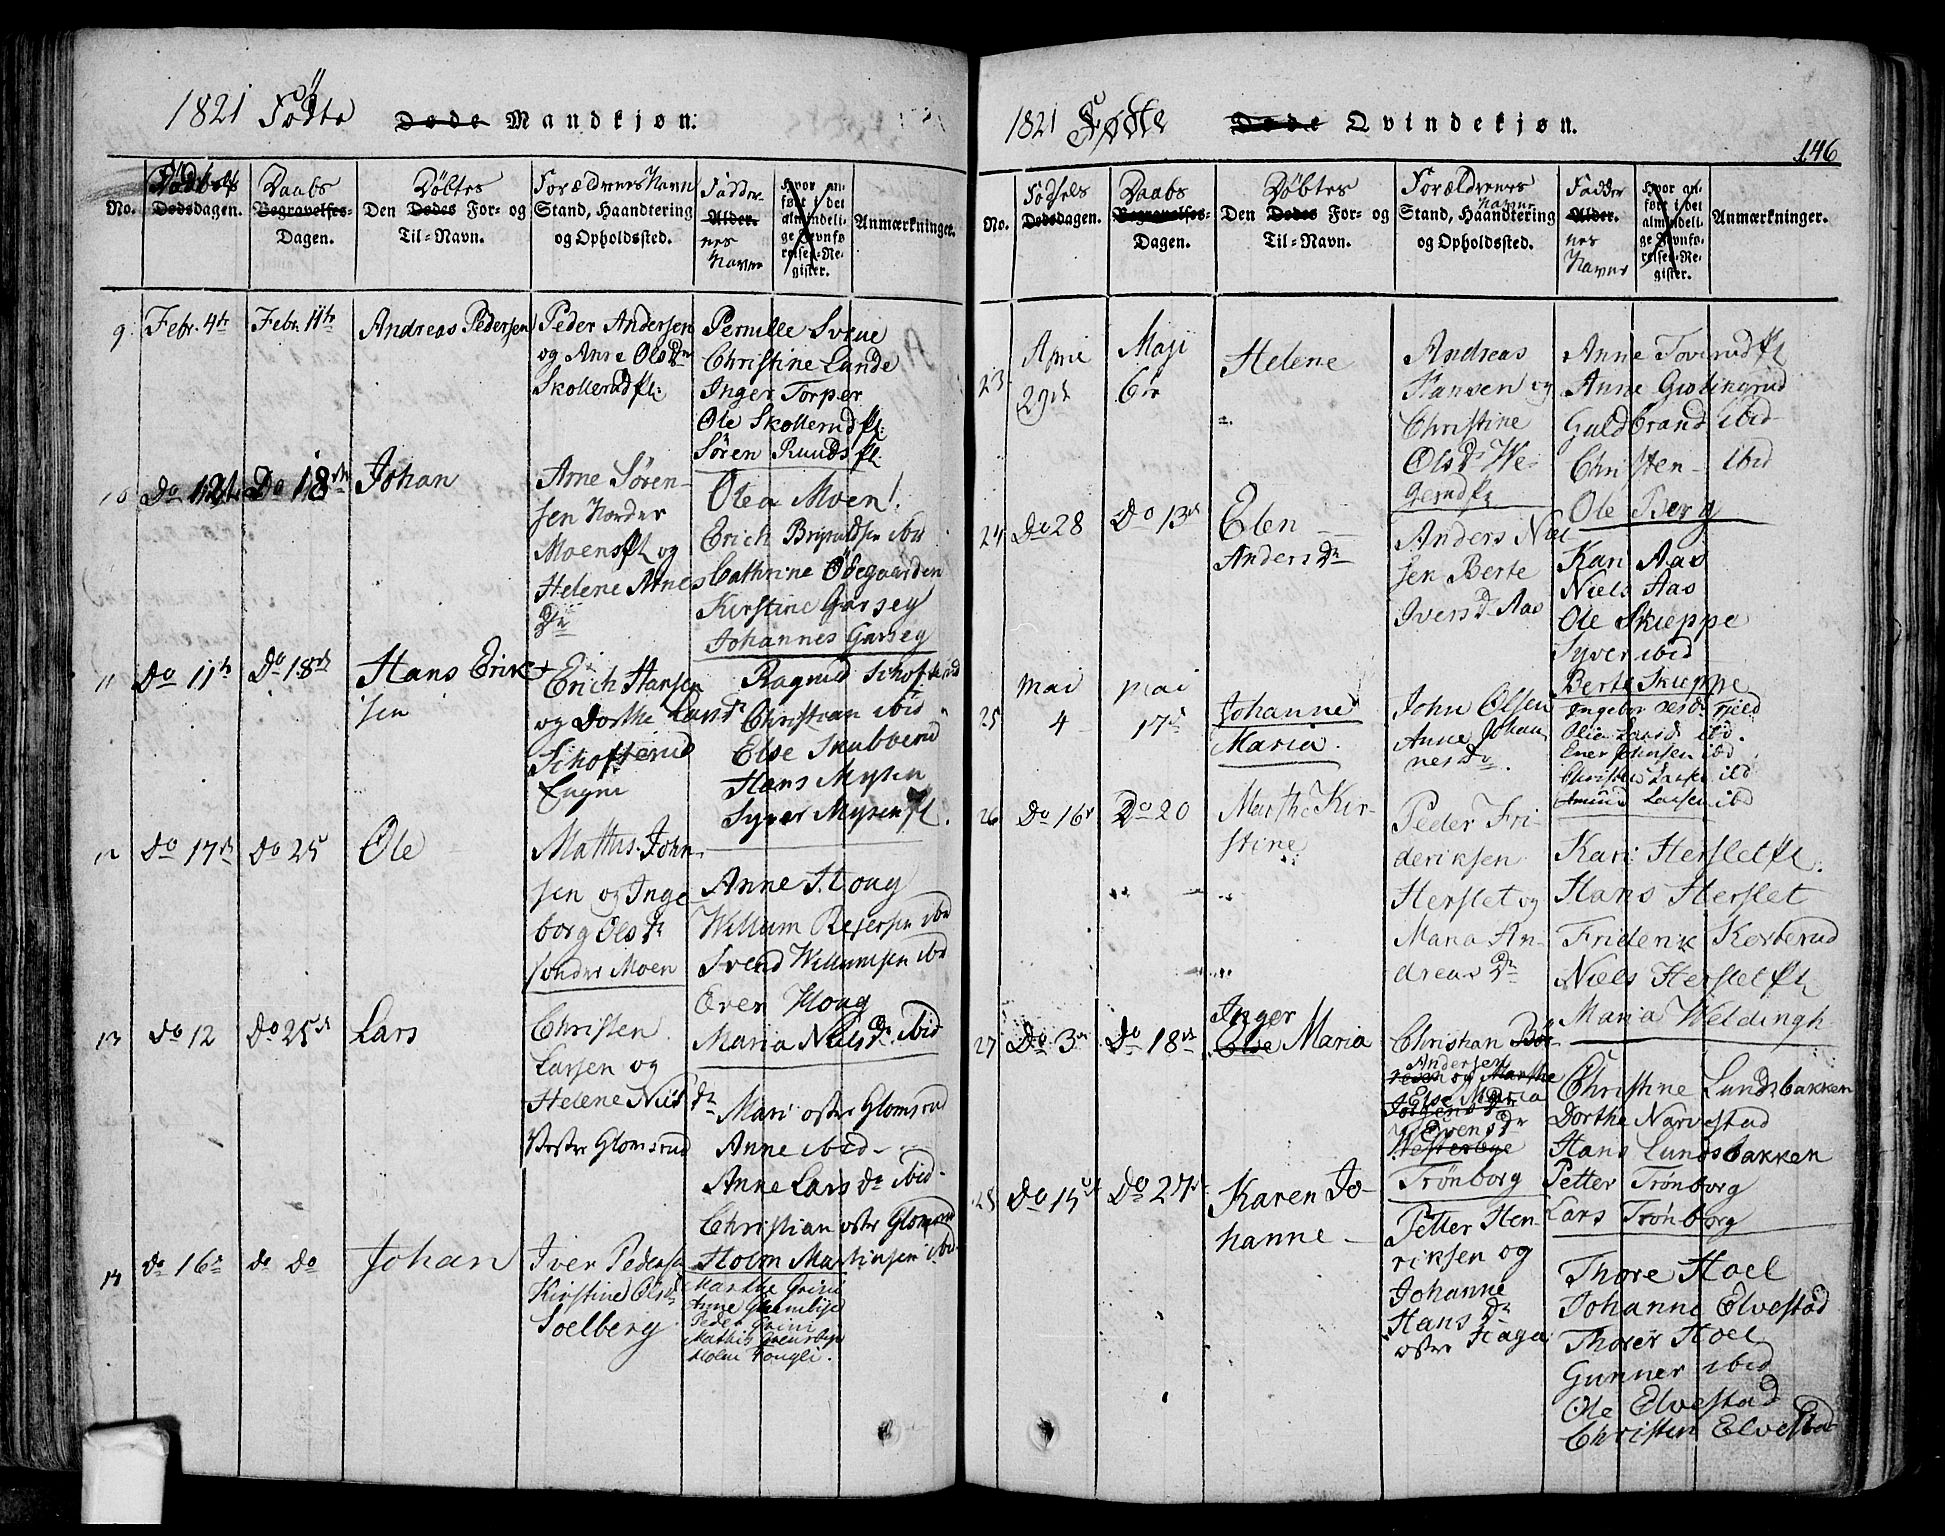 1821 Födte Døde Mandkjøn.
No.
Fødsels
Dødsdagen.
Daabs
Begravelses-
Dagen.
Döbtes
Den Dødes For- og
Til-Navn.
Forældrenes Navn
Stand, Haandtering
og Opholdssted.
Fadder-
Alder.
nes
Navne
Hvor an-
ført i det
almindeli-
ge Jevnfø
relses-Re-
gister.
Anmærkninger.
9. Febr. 4de Febr. 11te Andreas Pedersen
Peder Andersen
og Anne Olsdr
Skollerud fl:
Pernille Svene
Christine Lunde
Inger Torper
Ole Skollerud fl:
Sören Ruuds fl.
10 Do 12te Do 18de Johan
Arne Sören-
sen Nordre
Moens fl og
Helene Arnes
Dr
Olea Moen
Erich Brynildsen ibid
Cathrine Ödegaarden
Kirstine Garseg
Johannes Garseg
11 Do 11te Do 18de Hans Erik-
sen
Erich Hansen
og Dorthe Larsdr
Schofterud
Engne
Ragnid Schofterud
Christian ibid
Else Skubberud
Hans Mysen
Syver Mysen fl.
12 Do 17de Do 25 Ole
Mathis John-
sen og Inge
borg Olsdr
söndre Moen
Anne Houg
Willum Reiersen ibid
Svend Willumsen ibid
Ever Houg
Maria Nielsdr ibid
13 do 12 Do 25de Lars
Christen
Larsen og
Helene Nilsdr
Vestre Glomsrud
Mari ostre Glomsrud
Anne ibid
Anne Larsdr ibid
Christian ostre Glomsrud
Holm Martinsen ibid
14 do 16de do Do Johan
Iver Pedersen
Kirstine Olsdr
Soelberg
Martha Grini
Anne
Peder Grini
Mathis
Holm Fougli.
1821 Födte Døde Qvindekjøn.
146
No.
Födsels
Dødsdagen.
Daabs
Begravelses-
Dagen.
Döbtes
Den Dødes For- og
Til-Navn.
Forældrenes
Navne
Stand, Haandtering
og Opholdssted.
Fadder
Alder.
nes
Navne
Hvor an-
ført i det
almindeli-
ge Jevnfø-
relses-Re-
gister.
Anmærkninger.
23. April
29de
Maji
6te
Helene
Andreas
Hansen og
Christine
Olsdr We-
gerud fl
Anne Toverud fl
Anne Gislingrud
Guldbrand ibid
Christen ibid
Ole Berg
24 Do 28 Do 13de Elen
Andersdr
Anders Niel
sen Berte
Iversdr Aas
Kari Aas
Niels Aas
Ole Skieppe
Syver ibid
Berte Skieppe
25 Mai
4
mai
17de
Johanne
Maria
John Olsen
Anne Johan
nesdr.
Ole ibd.
Ener Johnsen ibd
Christen Larsen ibd
Amund Larsen ibd
26 Do 16de Do 20 Marthe Kir-
stine
Peder Fri-
deriksen
Herslet og
Maria An-
dreasdr
Kari Herslet fl.
Hans Herslet
Friderik Kosterud
Niels Herslet fl
Maria Weldingh
27 Do 3de Do 18de Inger
Else Maria
Christian Bör-
Andersen
resen og Marthe
Else Maria
Evensdr
Westerbye
Trönborg
Christine Lundsbakken
Dorthe Narvestad
Hans Lundsbakken
Petter Trönborg
Lars Trönborg
28 Do 15de Do 27de Karen Jo-
hanne
Petter Hen-
riksen og
Johanne
Hansdr
ostre Haga
Thore Hoel
Johanne Elvestad
Thorer Hoel
Gunner ibid
Ole Elvestad
Christen Elvestad